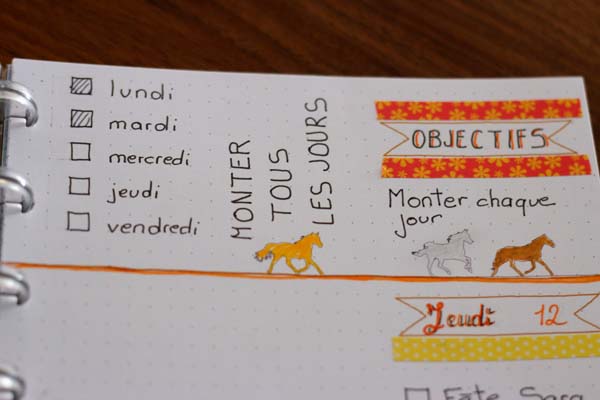 lundi
mardi
mercredi
jeudi
vendredi
MONTER
TOUS
LES JOURS
OBJECTIFS
Monter chaque
jour
Jeudi 12
Fête Sara